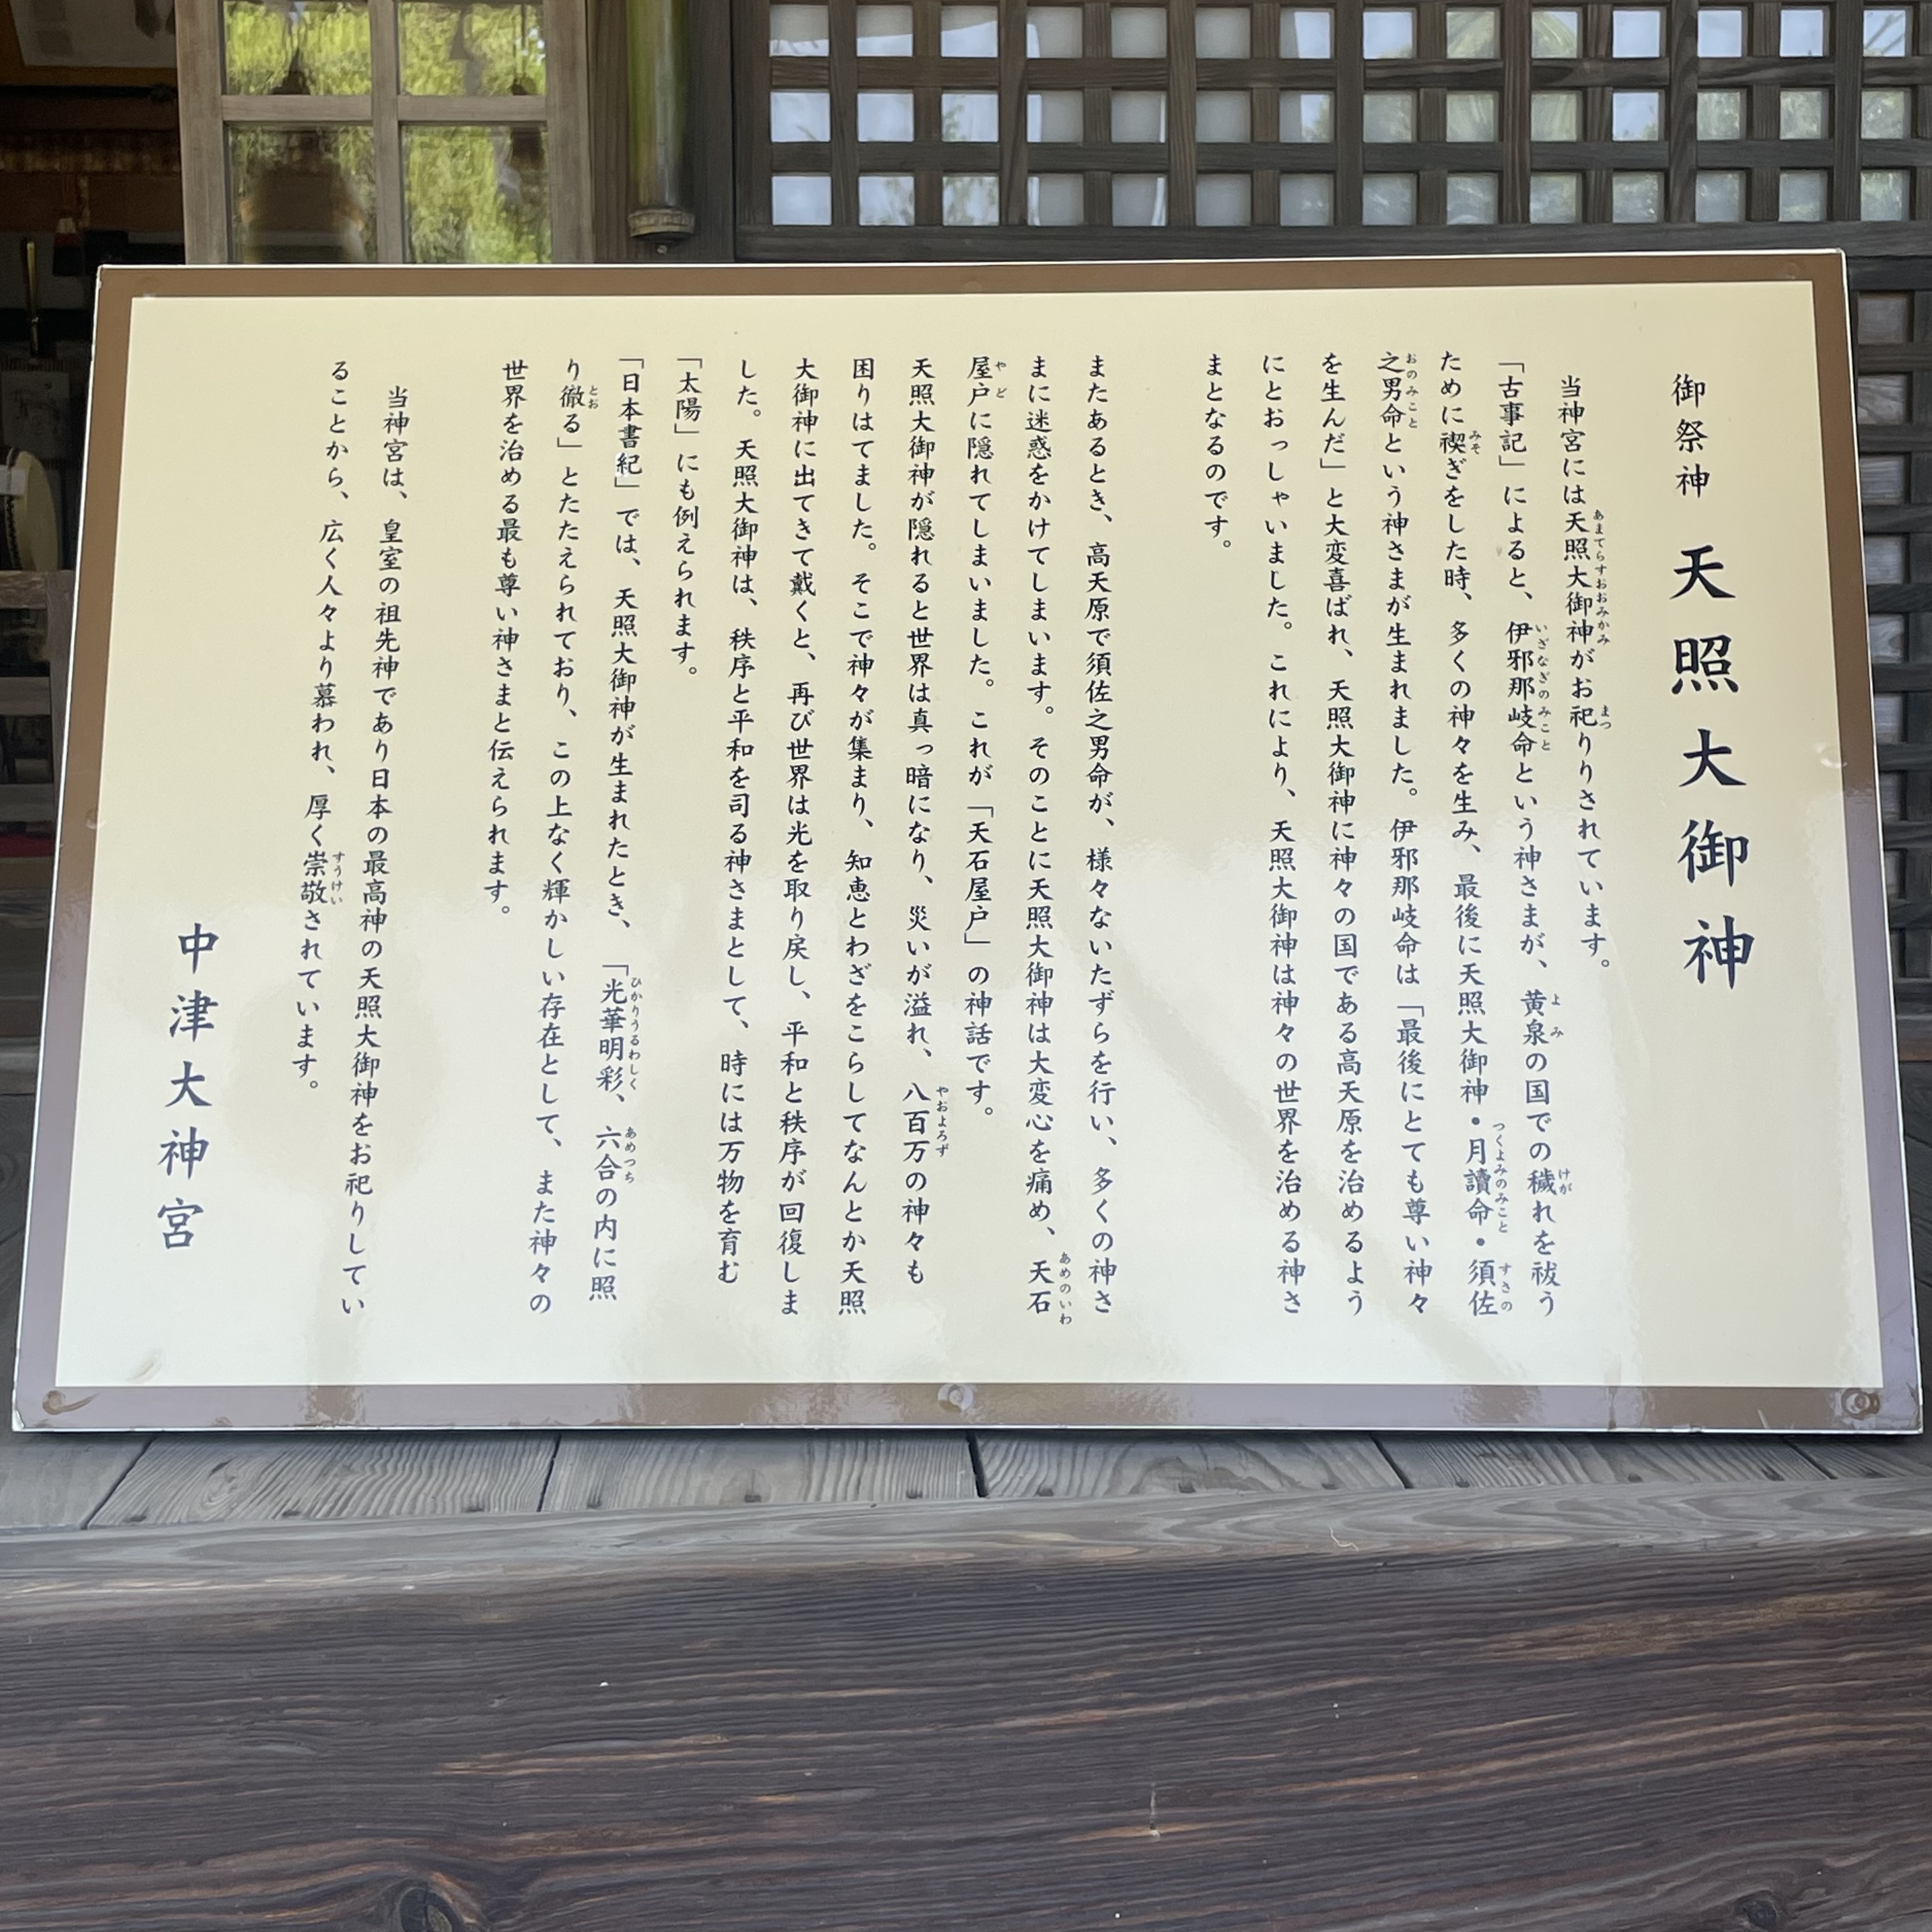 御祭神 天照大御神
当神宮には天照大御神がお祀りりされています。
「古事記」によると、伊邪那岐命という神さまが、黄泉の国での穢れを祓う
ために禊ぎをした時、多くの神々を生み、最後に天照大御神・月讀命・須佐
之男命という神さまが生まれました。伊邪那岐命は「最後にとても尊い神々
を生んだ」と大変喜ばれ、天照大御神に神々の国である高天原を治めるよう
にとおっしゃいました。これにより、天照大御神は神々の世界を治める神さ
まとなるのです。
またあるとき、高天原で須佐之男命が、様々ないたずらを行い、多くの神さ
まに迷惑をかけてしまいます。そのことに天照大御神は大変心を痛め、天石
屋戸に隠れてしまいました。これが「天石屋戸」の神話です。
天照大御神が隠れると世界は真っ暗になり、災いが溢れ、八百万の神々も
困りはてました。そこで神々が集まり、知恵とわざをこらしてなんとか天照
大御神に出てきて戴くと、再び世界は光を取り戻し、平和と秩序が回復しま
した。天照大御神は、秩序と平和を司る神さまとして、時には万物を育む
「太陽」にも例えられます。
「日本書紀」では、天照大御神が生まれたとき、「光華明彩、六合の内に照
り徹る」とたたえられており、この上なく輝かしい存在として、また神々の
世界を治める最も尊い神さまと伝えられます。
当神宮は、皇室の祖先神であり日本の最高神の天照大御神をお祀りしてい
ることから、広く人々より慕われ、厚く崇敬されています。
中津大神宮